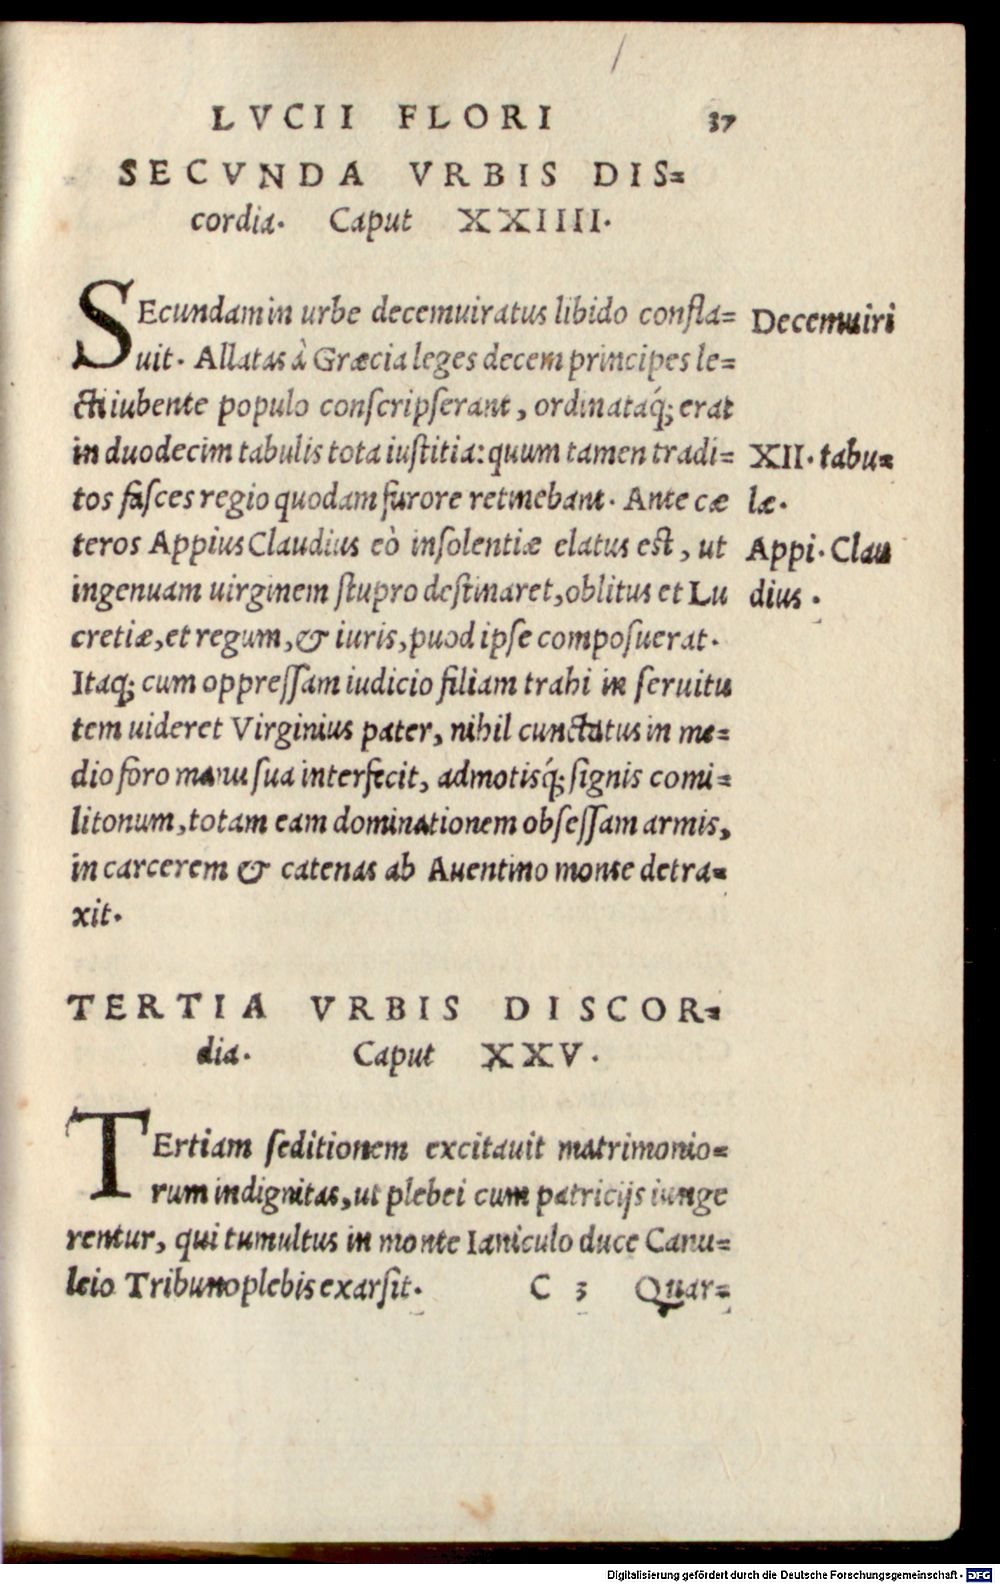 LVCII FLORI 37
SECVNDA VRBIS DIS=
cordia. Caput XXIIII.
SEcundam in urbe decemuiratus libido confla=
uit. Allatas à Græcia leges decem principes le=
cti iubente populo conscripserant, ordinataq́; erat
in duodecim tabulis tota iustitia: quum tamen tradi=
tos fasces regio quodam furore retinebant. Ante cæ
teros Appius Claudius eò insolentiæ elatus est, ut
ingenuam uirginem stupro destinaret, oblitus et Lu
cretiæ, et regum, & iuris, puod ipse composuerat.
Itaq; cum oppressam iudicio filiam trahi in seruitu
tem uideret Virginius pater, nihil cunctatus in me=
dio foro manu sua interfecit, admotisq́; signis comi=
litonum, totam eam dominationem obsessam armis,
in carcerem & catenas ab Auentino monte detra=
xit.
Decemuiri
XII. tabu=
læ.
Appi. Clau
dius.
TERTIA VRBIS DISCOR=
dia. Caput XXV.
TErtiam seditionem excitauit matrimonio=
rum indignitas, ut plebei cum patricijs iunge
rentur, qui tumultus in monte Ianiculo duce Canu=
leio Tribuno plebis exarsit.
C 3 Quar=
Digitalisierung gefördert durch die Deutsche Forschungsgemeinschaft - DFG